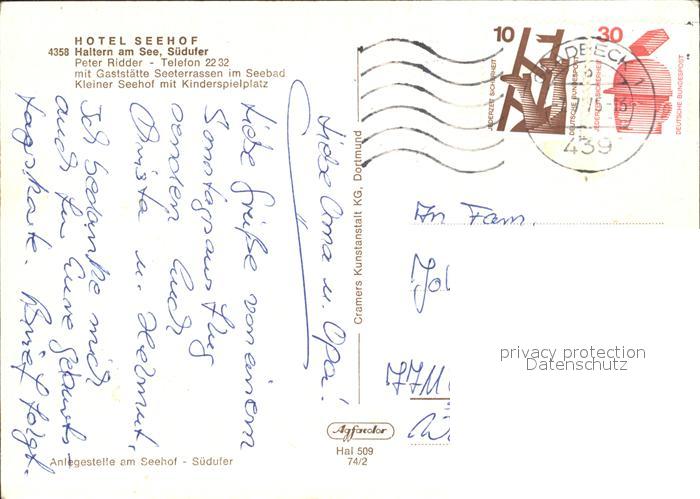 HOTEL SEEHOF
4358 Haltern am See, Südufer
Peter Ridder - Telefon 22 32
mit Gaststätte Seeterrassen im Seebad
Kleiner Seehof mit Kinderspielplatz
Liebe Oma u. Opa!
Liebe Grüße von einem
Sonntagsausflug
senden Euch
Christa u. Helmut.
Ich bedanke mich
auch für Eure Geburts-
tagskarte. Brief folgt.
Anlegestelle am Seehof - Südufer
Cramers Kunstanstalt KG, Dortmund
Agfacolor
Hal 509
74/2
10
JEDERZEIT SICHERHEIT
DEUTSCHE BUNDESPOST
30
JEDERZEIT SICHERHEIT
DEUTSCHE BUNDESPOST
439
An Fam.
privacy protection
Datenschutz